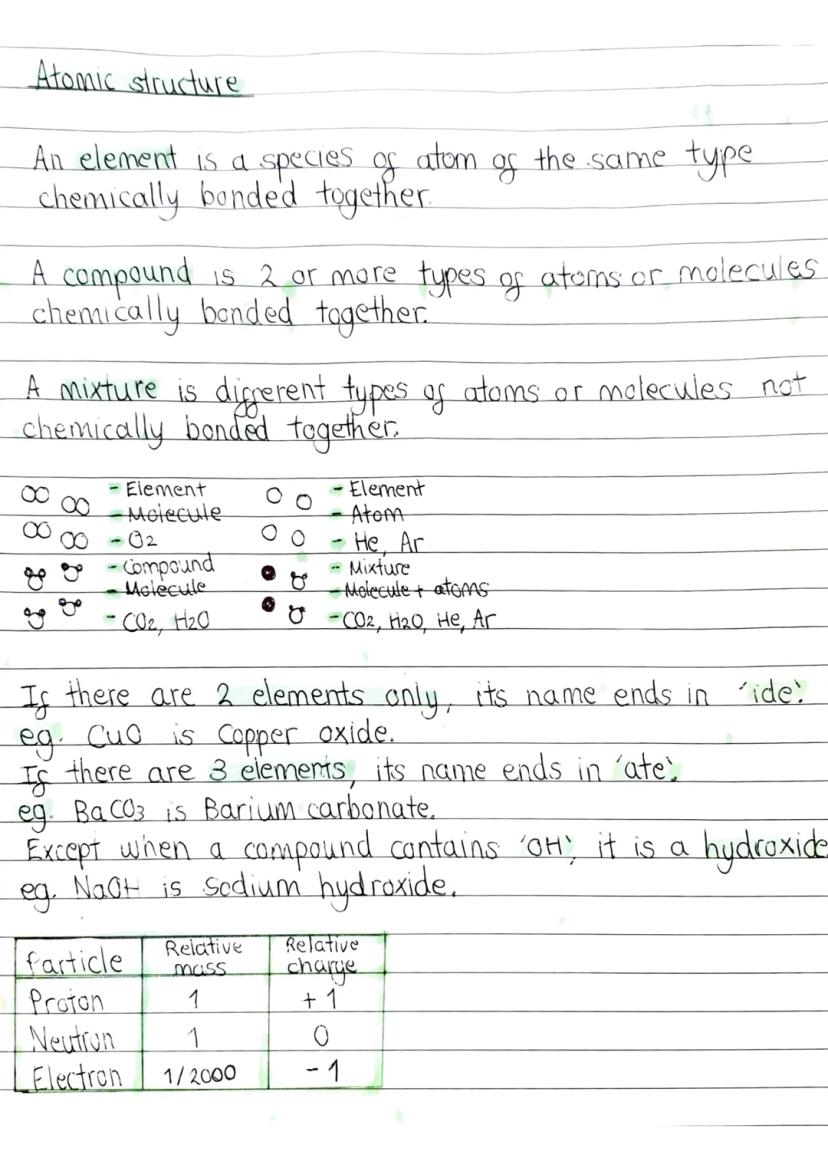 Atomic structure
An element is a species of atom of the same type
chemically bonded together.
A compound is 2 or more types of atoms or molecules
chemically bonded together.
A mixture is different types of atoms or molecules not
chemically bonded together.
- Element - Element
- Molecule - Atom
- O2 - He, Ar
- Compound - Mixture
- Molecule - Molecule + atoms
- CO2, H2O - CO2, H2O, He, Ar
If there are 2 elements only, its name ends in 'ide'.
eg. CuO is Copper oxide.
If there are 3 elements, its name ends in 'ate'.
eg. BaCO3 is Barium carbonate.
Except when a compound contains 'OH', it is a hydroxide
eg. NaOH is sodium hydroxide.
Particle Relative mass Relative charge
Proton 1 +1
Neutron 1 0
Electron 1/2000 -1